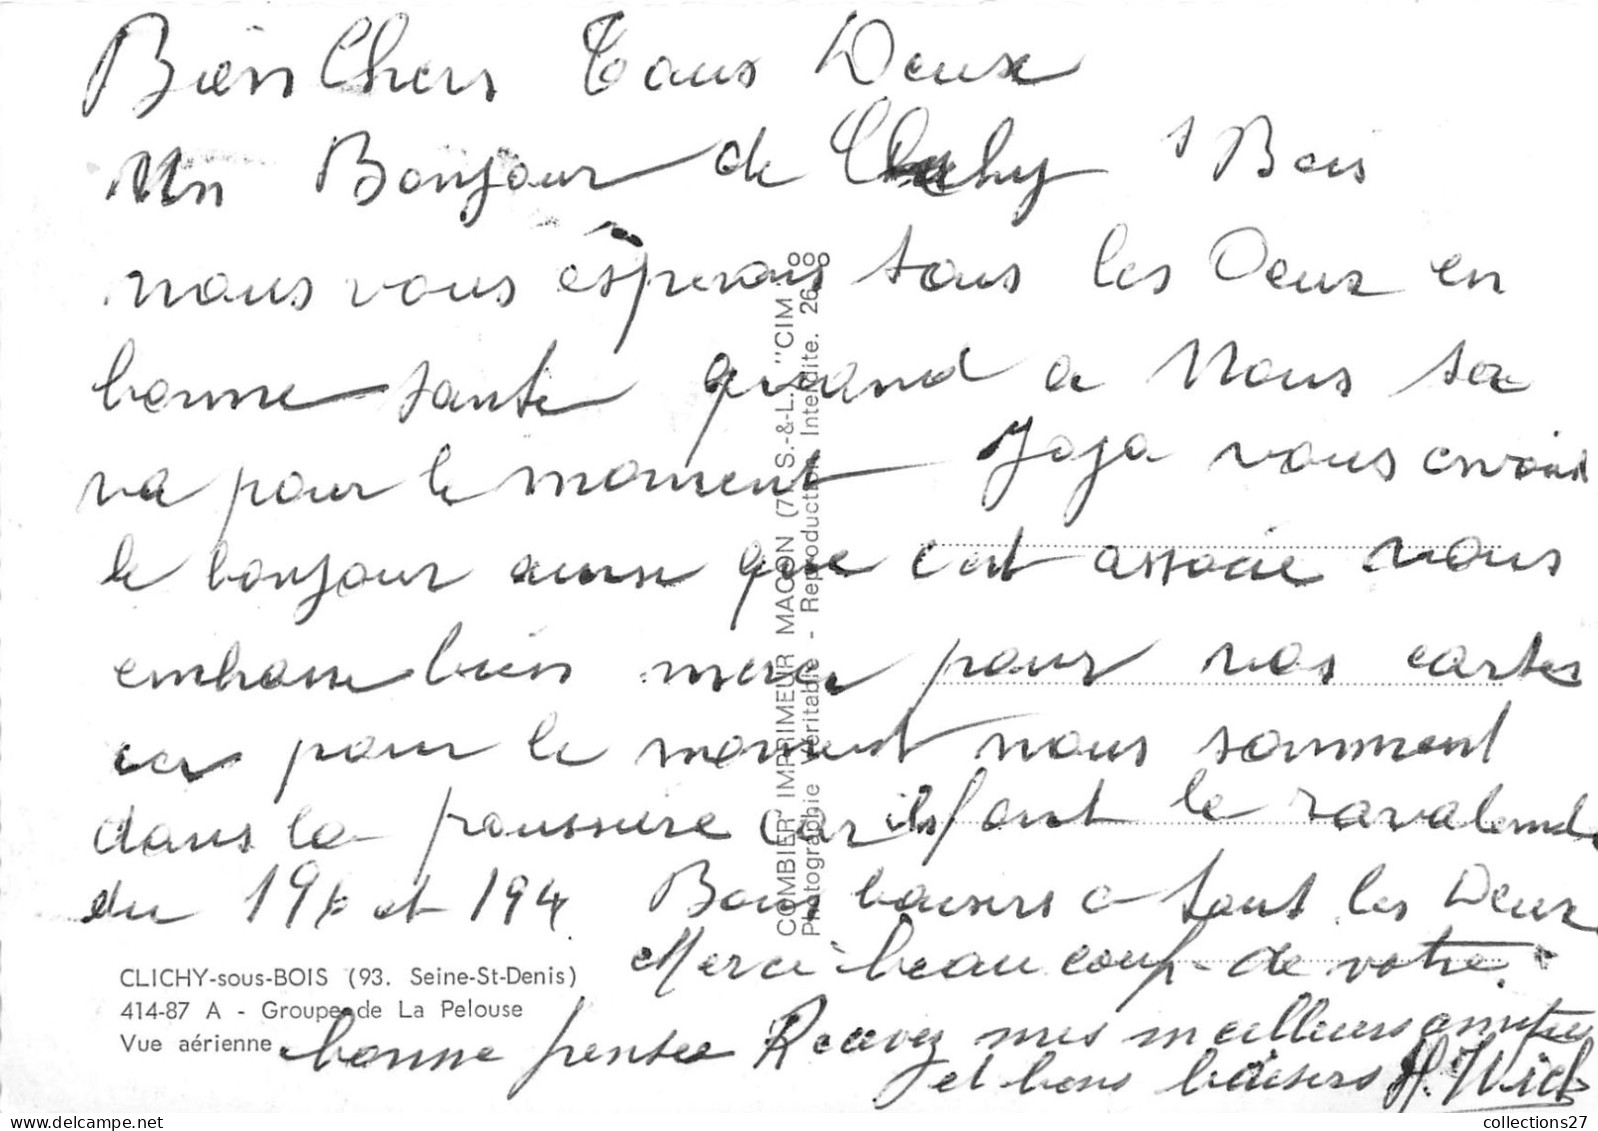 Bien Chers Tous Deux
Un Bonjour de Clichy s Bois
nous vous ésperons tous les Deux en
bonne sante quand a Nous sa
va pour le moment Jojo vous envoie
le bonjour aussi que c'est associe nous
embrasse bien merci pour vos cartes
ici pour le moment nous somment
dans la poussiere car ils font le ravalement
du 19 et 194 Bons baisers a tout les Deux
Merci beaucoup de votre
bonne pensee Recevez mes meilleurs amities
et bons baisers H. Wich
CLICHY-sous-BOIS (93. Seine-St-Denis)
414-87 A - Groupe de La Pelouse
Vue aérienne
COMBIER IMPRIMEUR MACON (71 S.-&-L.) "CIM"
Photographie Véritable - Reproduction Interdite.
collections27